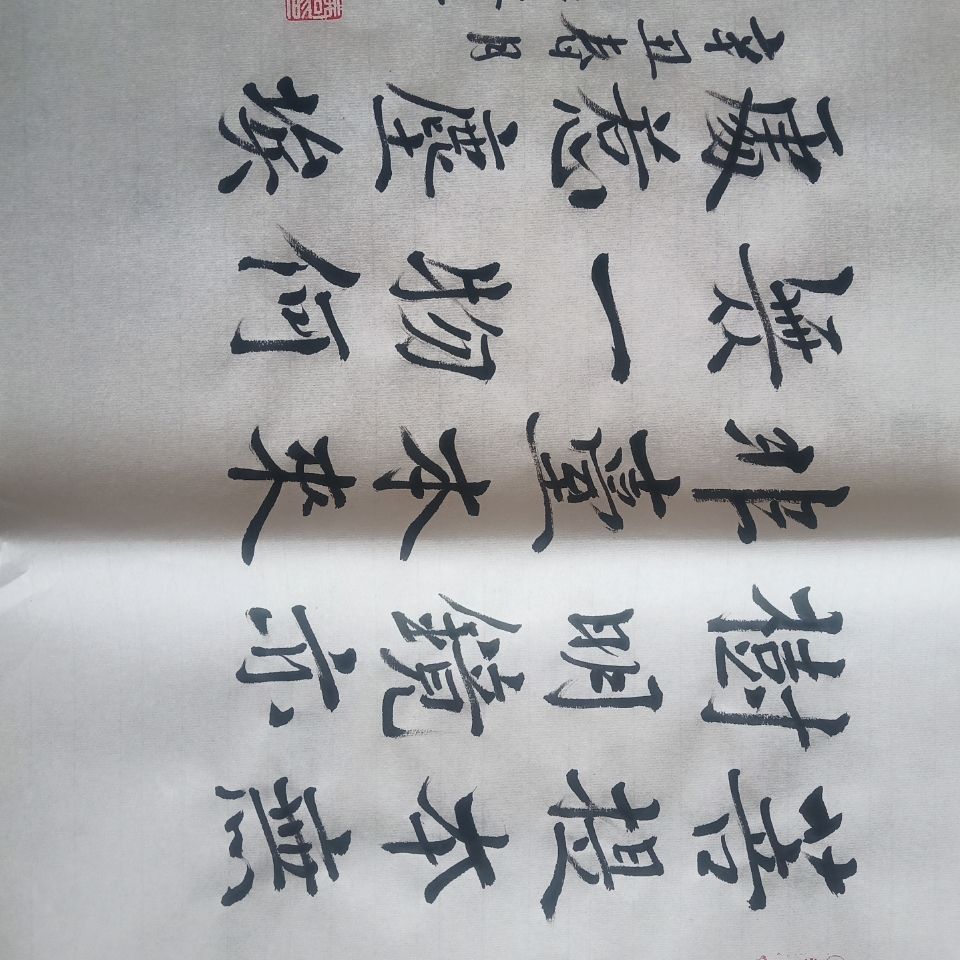 菩提本無
樹明鏡亦
非臺本来
無一物何
處惹塵埃
辛丑春月